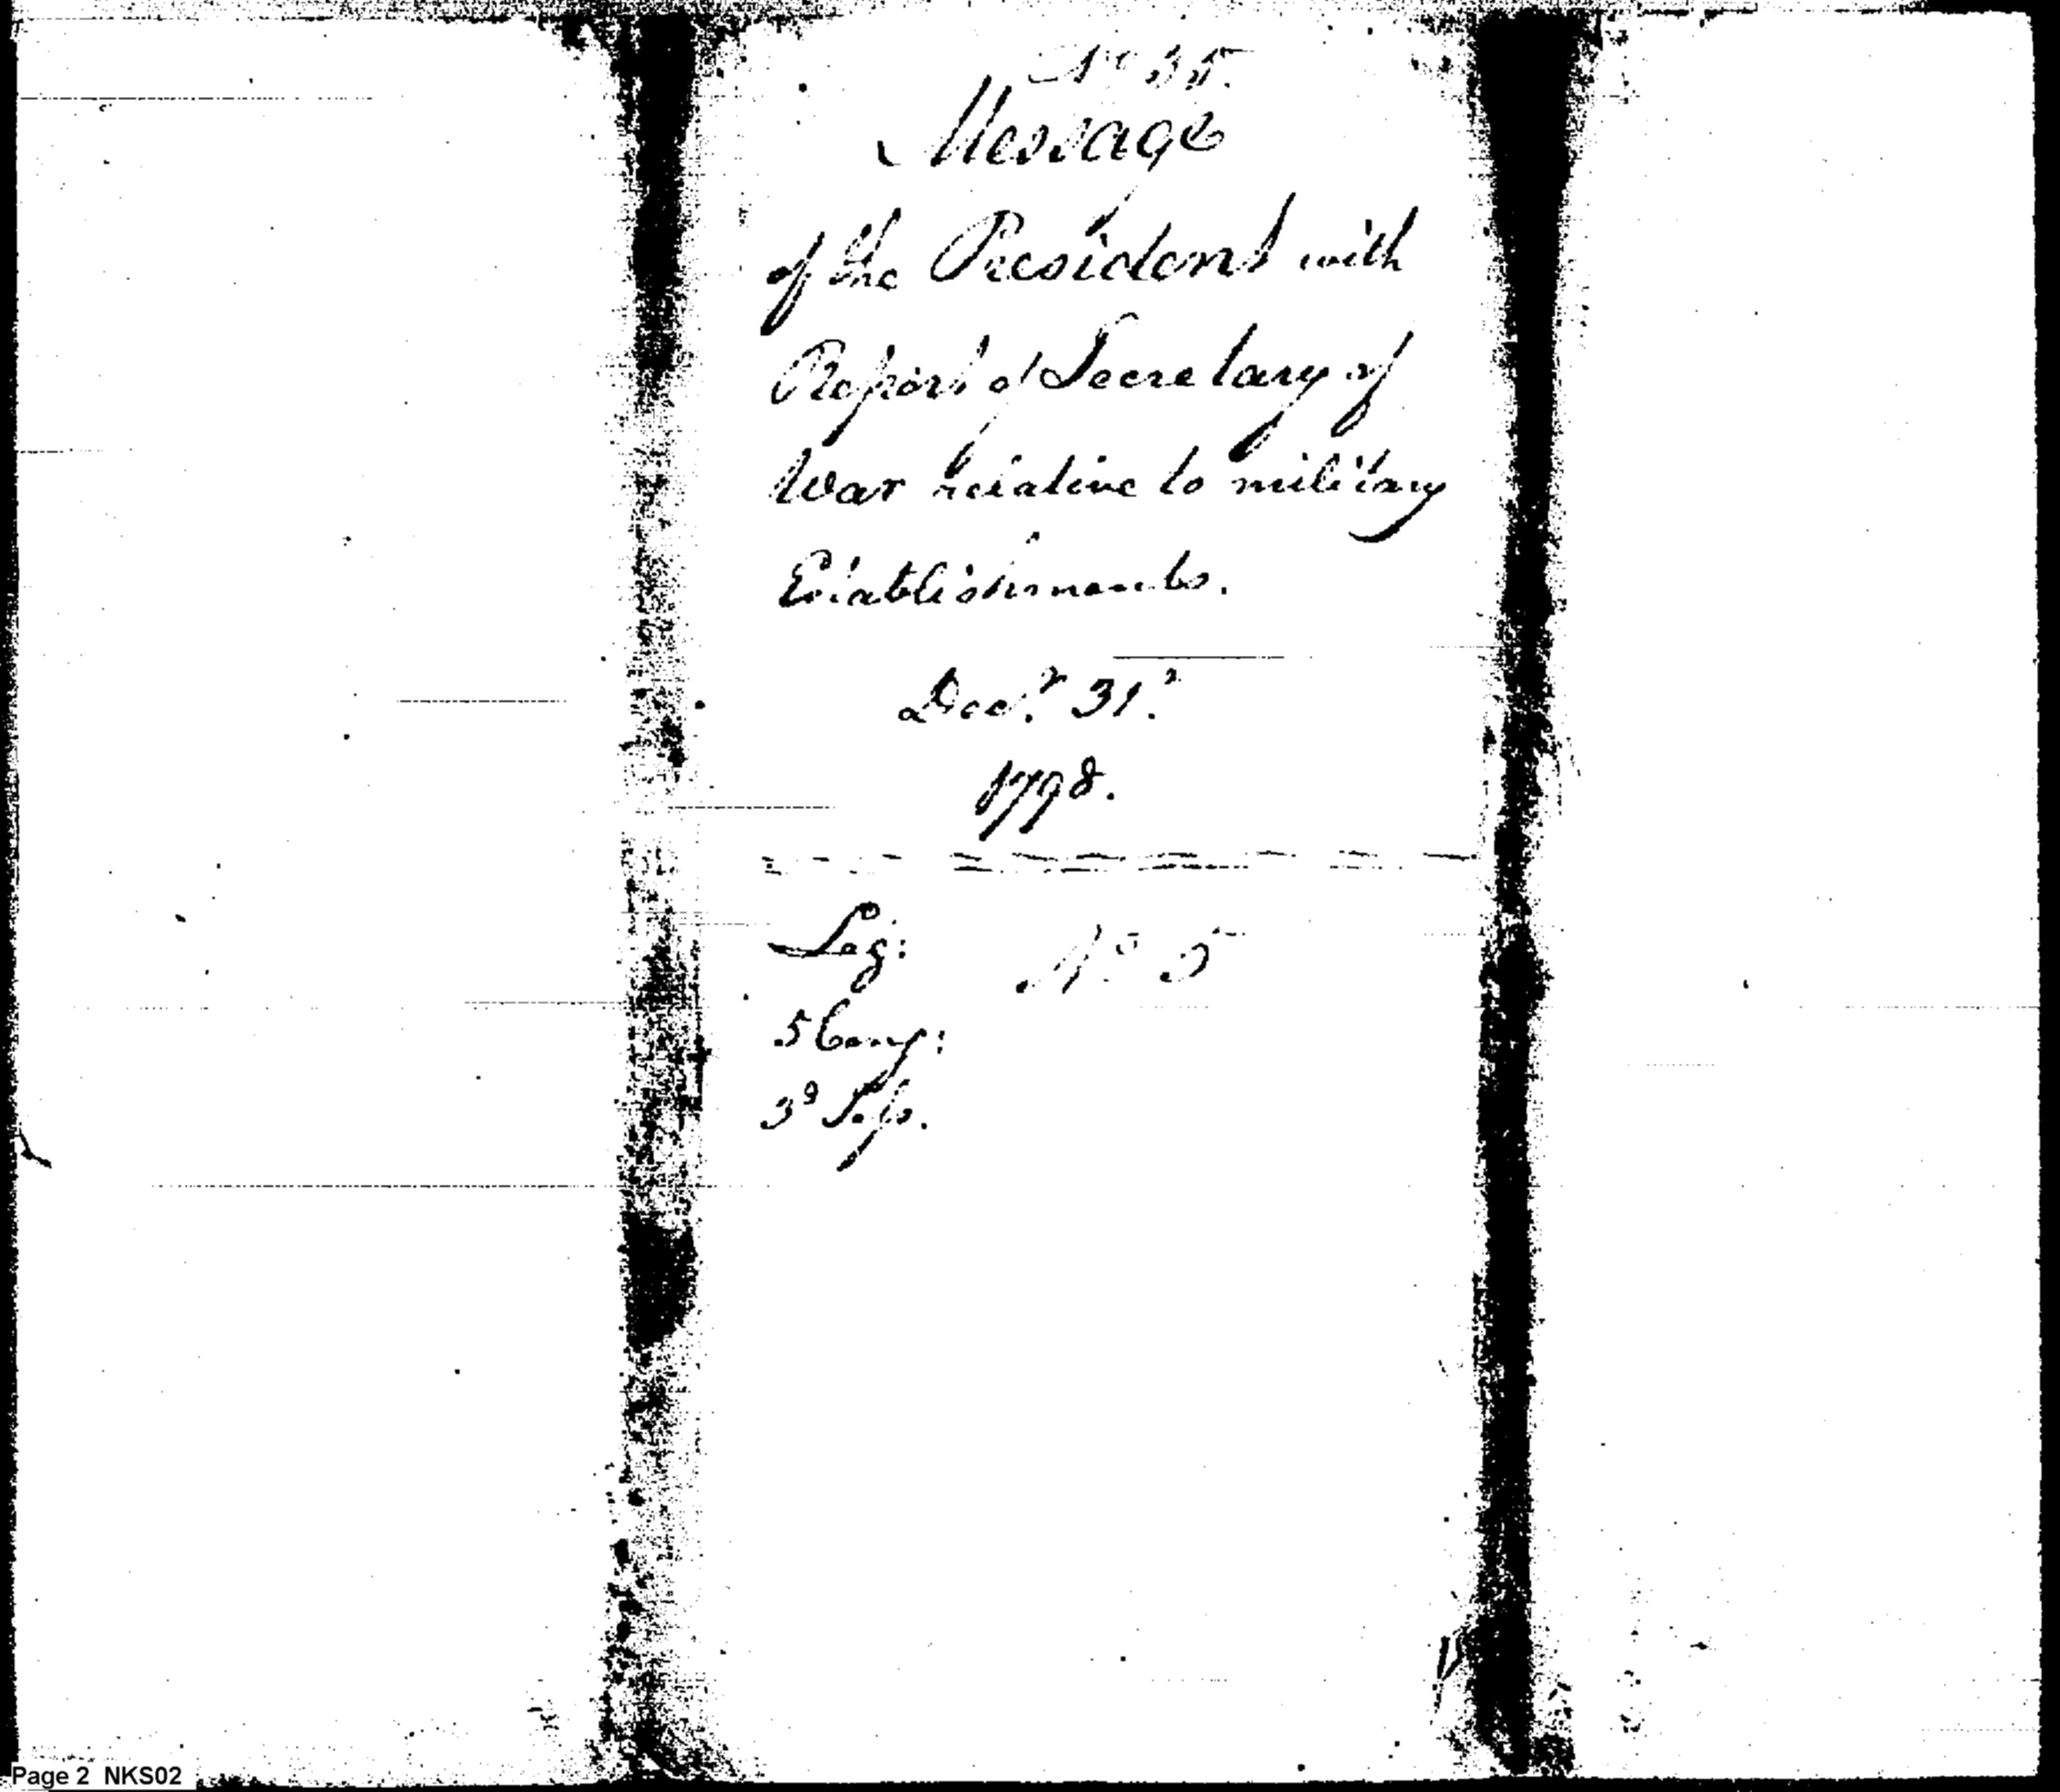 No 35.
Message
of the President with
Report of Secretary of
War relative to military
Establishments.
Decr. 31.
1798.
Leg: No 5
5 Cong:
3d Sess.
Page 2 NKS02